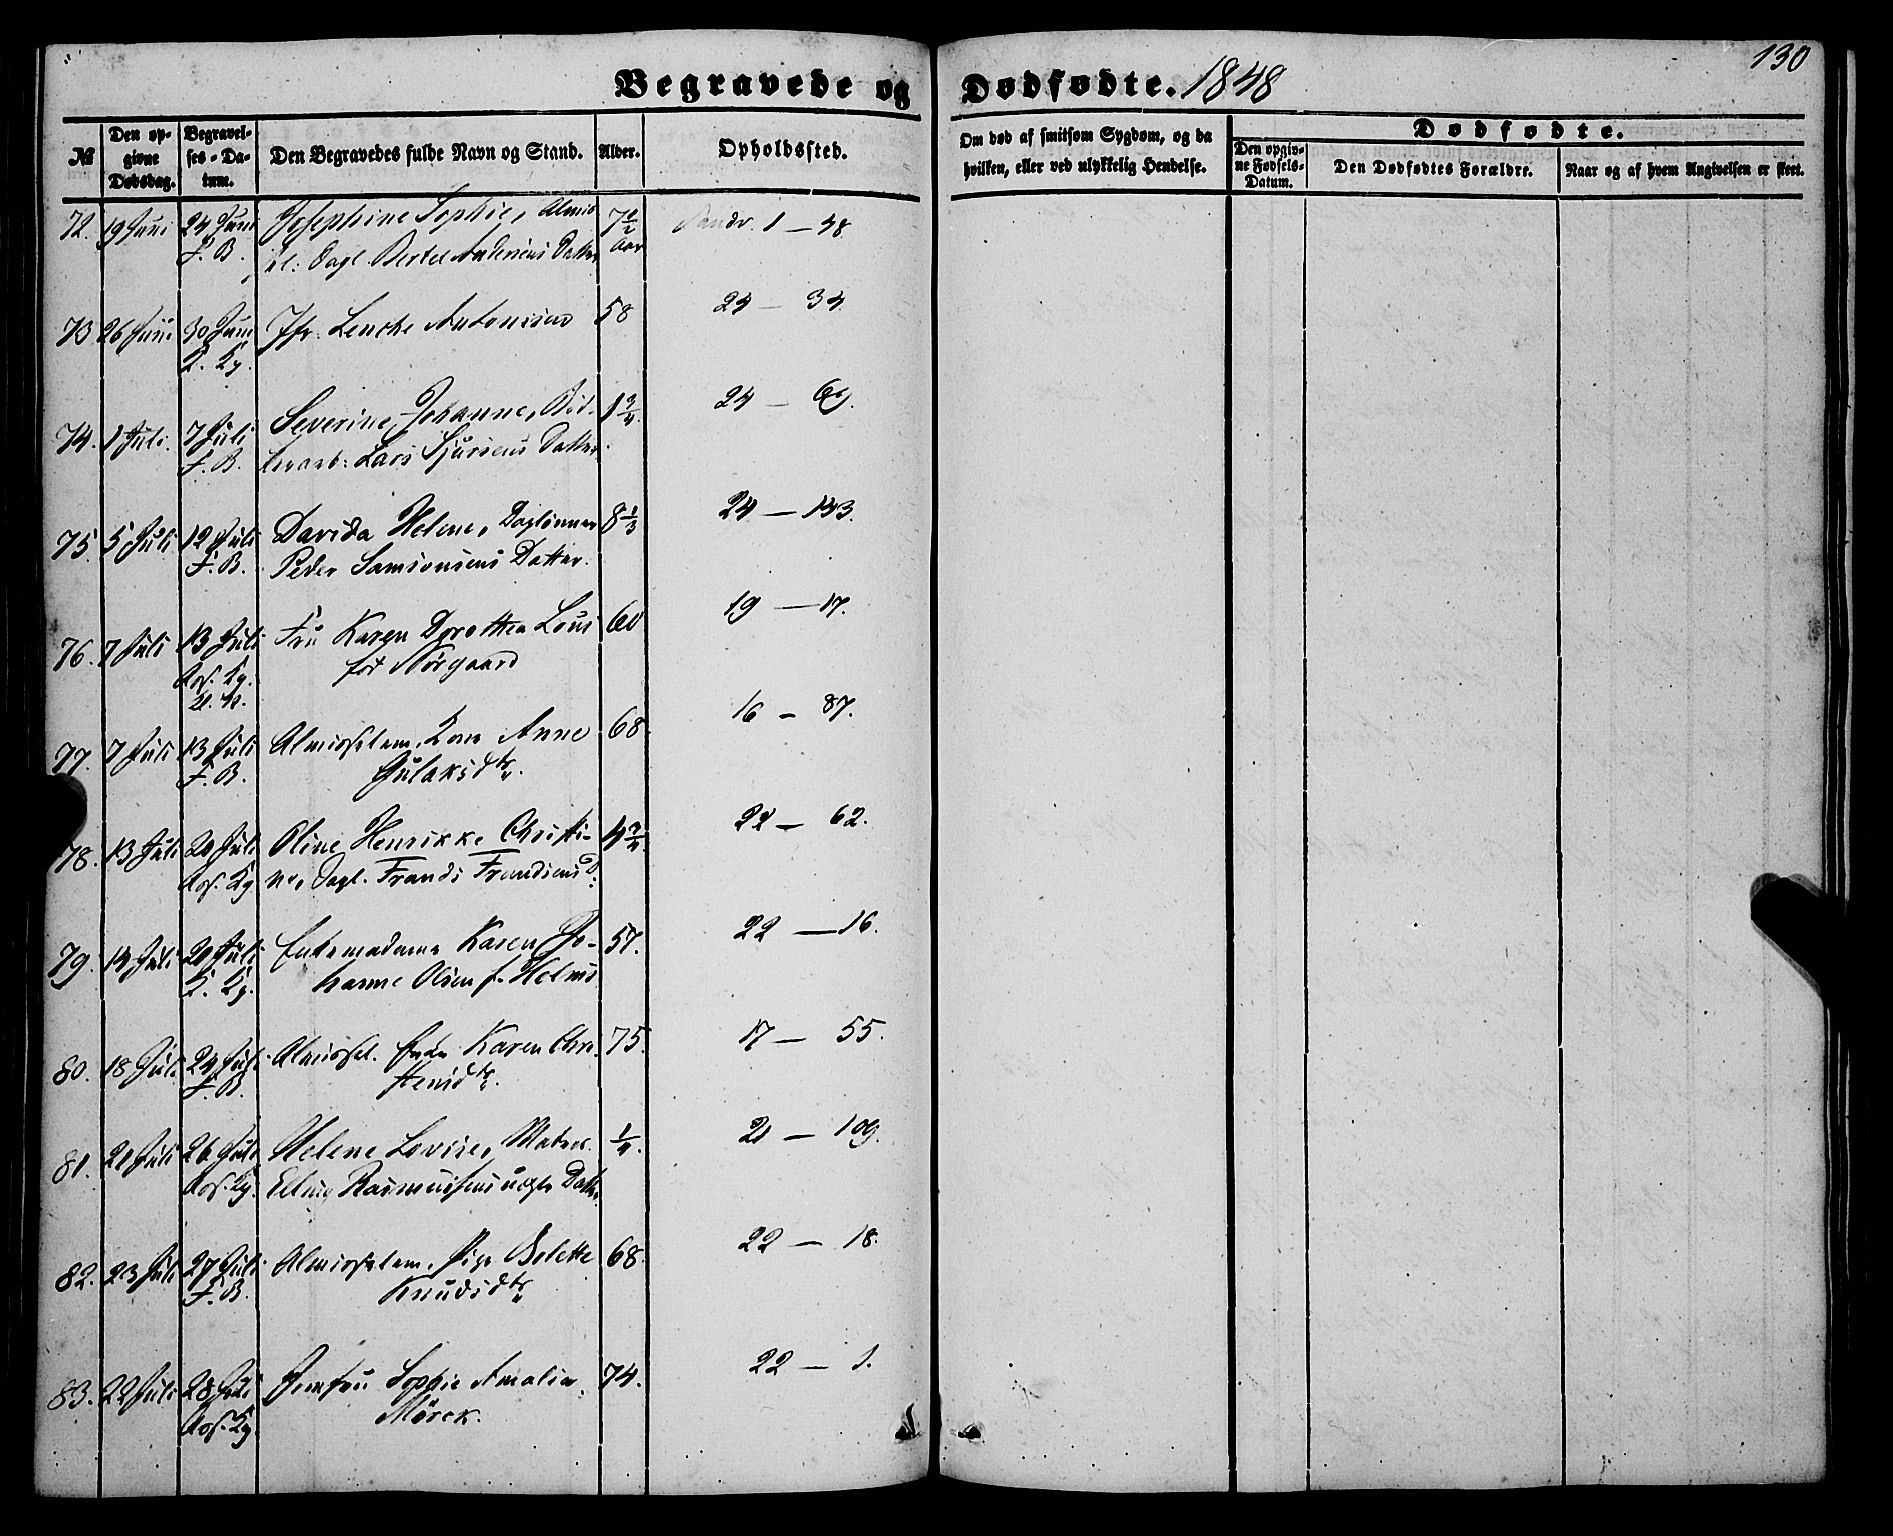 130
Begravede og Dødfødte. 1848
№
Den opgivne Dødsdag.
Begravelses-Datum.
Den Begravedes fulde Navn og Stand.
Alder.
Opholdssted.
Om død af smitsom Sygdom, og da hvilken, eller ved ulykkelig Hendelse.
Dødfødte.
Den opgivne Fødsels-Datum.
Den Dødfødtes Forældre.
Naar og af hvem Angivelsen er skeet.
72. 19 Juni 24 Juni Josephine Sophie, Almis 7½ 1 — 38
F. B. Dagl. Bertel Andersens Datter Aar
73 26 Juni 30 Juni Jfr. Lenche Antonsen 58 24 — 34.
K. Kg.
74. 1 Juli. 7 Juli Severine Johanne, Bød- 1¾ 24 — 69.
F. B. kerarb: Lars Sjursens Datter.
75. 5 Juli 12 Juli Davida Helene, Daglønner 8⅓ 24 — 143.
F. B. Peder Samsonsens Datter.
76. 7 Juli 13 Juli Fru Karen Dorothea Lous 60 19 — 17.
Kors. Kg. fød Nørgaard
77. 7 Juli 13 Juli Almisselem Kone Anne 68. 16 — 87.
F. B. Gulaksdtr.
78. 13 Juli 20 Juli Oline Henrikke Christi- 4¾ 22 — 62.
Kors. Kg. ne, Dagl. Frands Frandsens D:
79. 14 Juli 20 Juli Enkemadame Karen Jo- 57. 22 — 16.
K. Kg. hanne Olsen f. Helms
80. 18 Juli 24 Juli Almissel. Enke Karen Chri- 75. 17 — 55.
F. B. stensdtr.
81. 21 Juli 26 Juli Helene Lovise, Matros ¼. 21 — 109.
Kors. Kg. Elling Rasmussens uægte Datter
82. 23 Juli 27 Juli Almisselem, Pige Bolette 68. 22 — 18.
F. B. Knudsdtr.
83. 22 Juli 28 Juli Jomfru Sophie Amalia 74. 22 — 1.
Kors. Kg. Mørck.